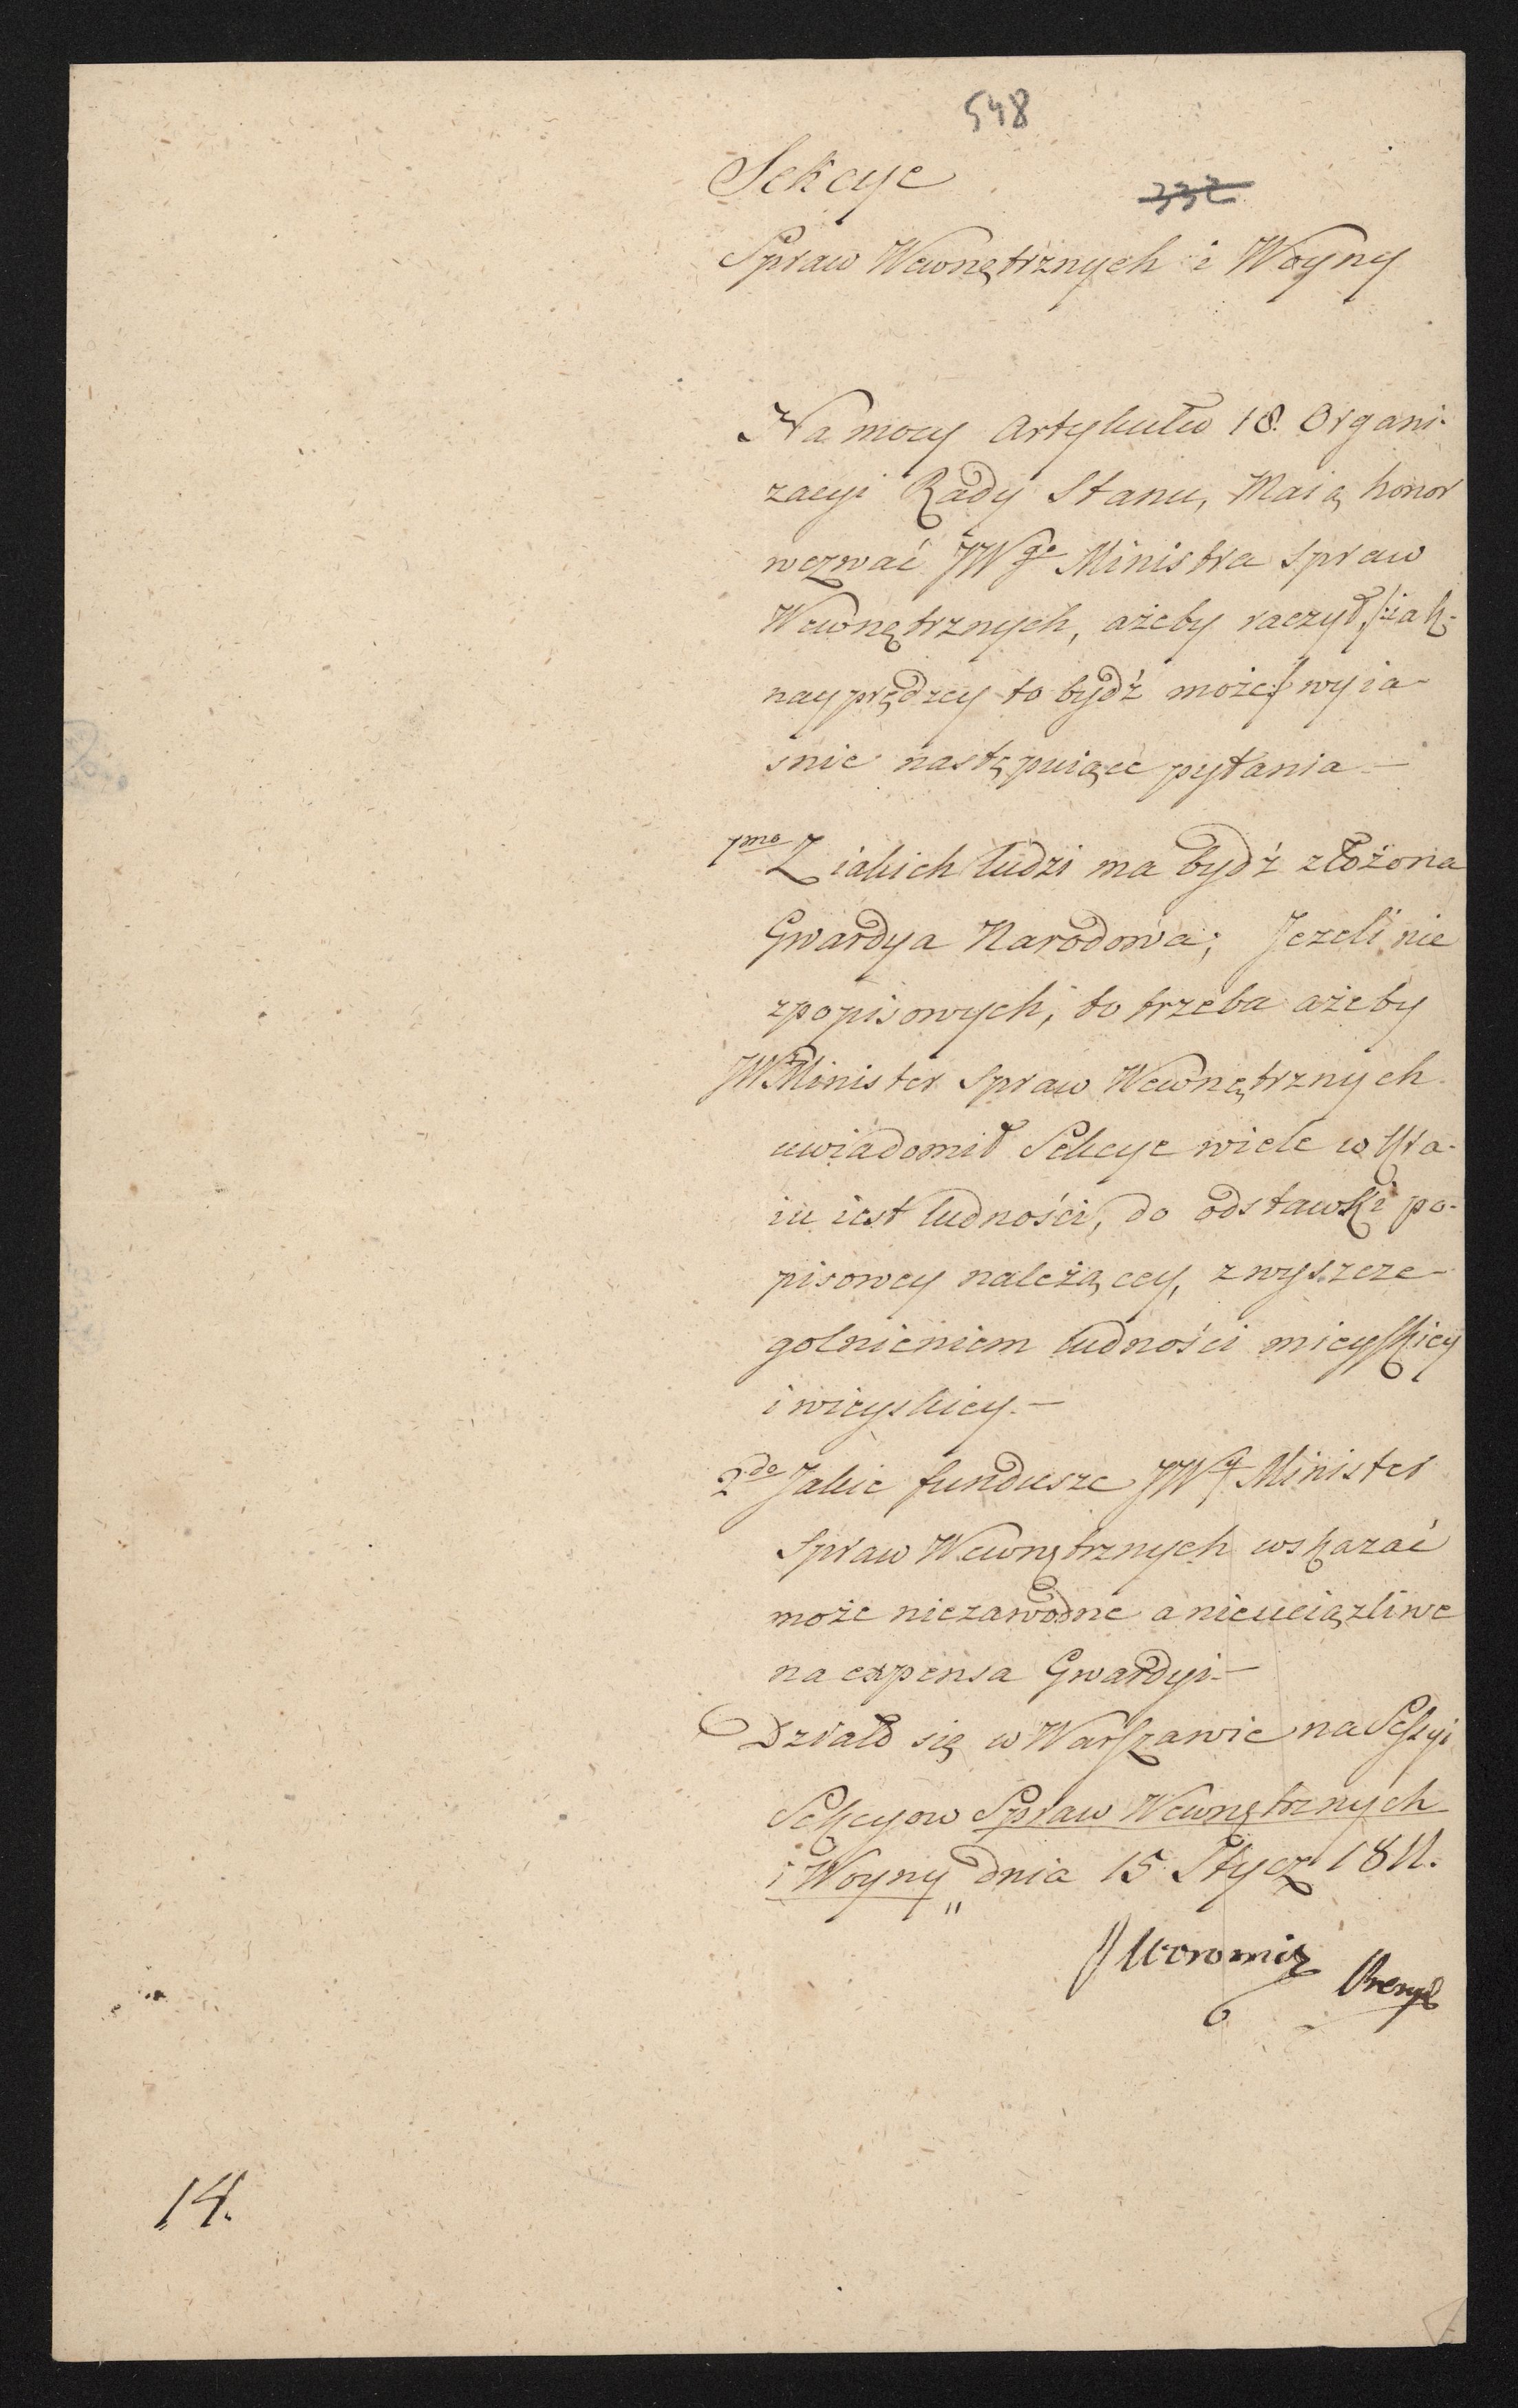 548
Sekcye
332
Spraw Wewnętrznych i Woyny
Na mocy Artykułu 18. Organi-
zacyi Rady Stanu, Maią honor
wezwać JWgo Ministra Spraw
Wewnętrznych, ażeby raczył, /:iak-
nayprędzey to bydź może:/ wyia-
snic następuiące pytania –
1mo Z iakich ludzi ma bydź złożona
Gwardya Narodowa; Jezeli nie
z popisowych, to trzeba ażeby
JW Minister Spraw Wewnętrznych
uwiadomił Sekcye wiele w Kra-
iu iest ludności, do odstawki po-
pisowey należącey, z wyszcze-
golnieniem ludności mieyskiey
i wieyskiey. –
2do Jakie fundusze JW Minister
Spraw Wewnętrznych wskazać
może niezawodne a nieuciązliwe
na expensa Gwardyi –
Działo się w Warszawie na Sessyi
Sekcyow Spraw Wewnętrznych
i Woyny dnia 15 Stycz 1811.
14.